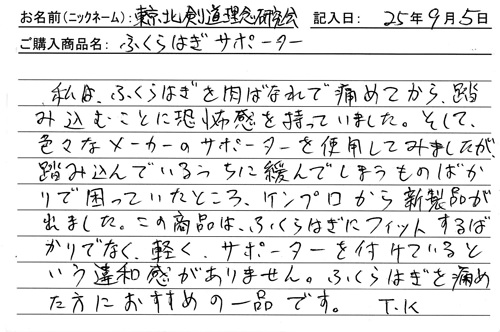 お名前(ニックネーム): 東京北剣道理念研究会 記入日: 25年9月5日
ご購入商品名: ふくらはぎサポーター
私は、ふくらはぎを肉ばなれで痛めてから、踏
み込むことに恐怖感を持っていました。そして、
色々なメーカーのサポーターを使用してみましたが
踏み込んでいるうちに緩んでしまうものばか
りで困っていたところ、ケンプロから新製品が
出ました。この商品は、ふくらはぎにフィットするば
かりでなく、軽く、サポーターを付けていると
いう違和感がありません。ふくらはぎを痛め
た方におすすめの一品です。 T.K